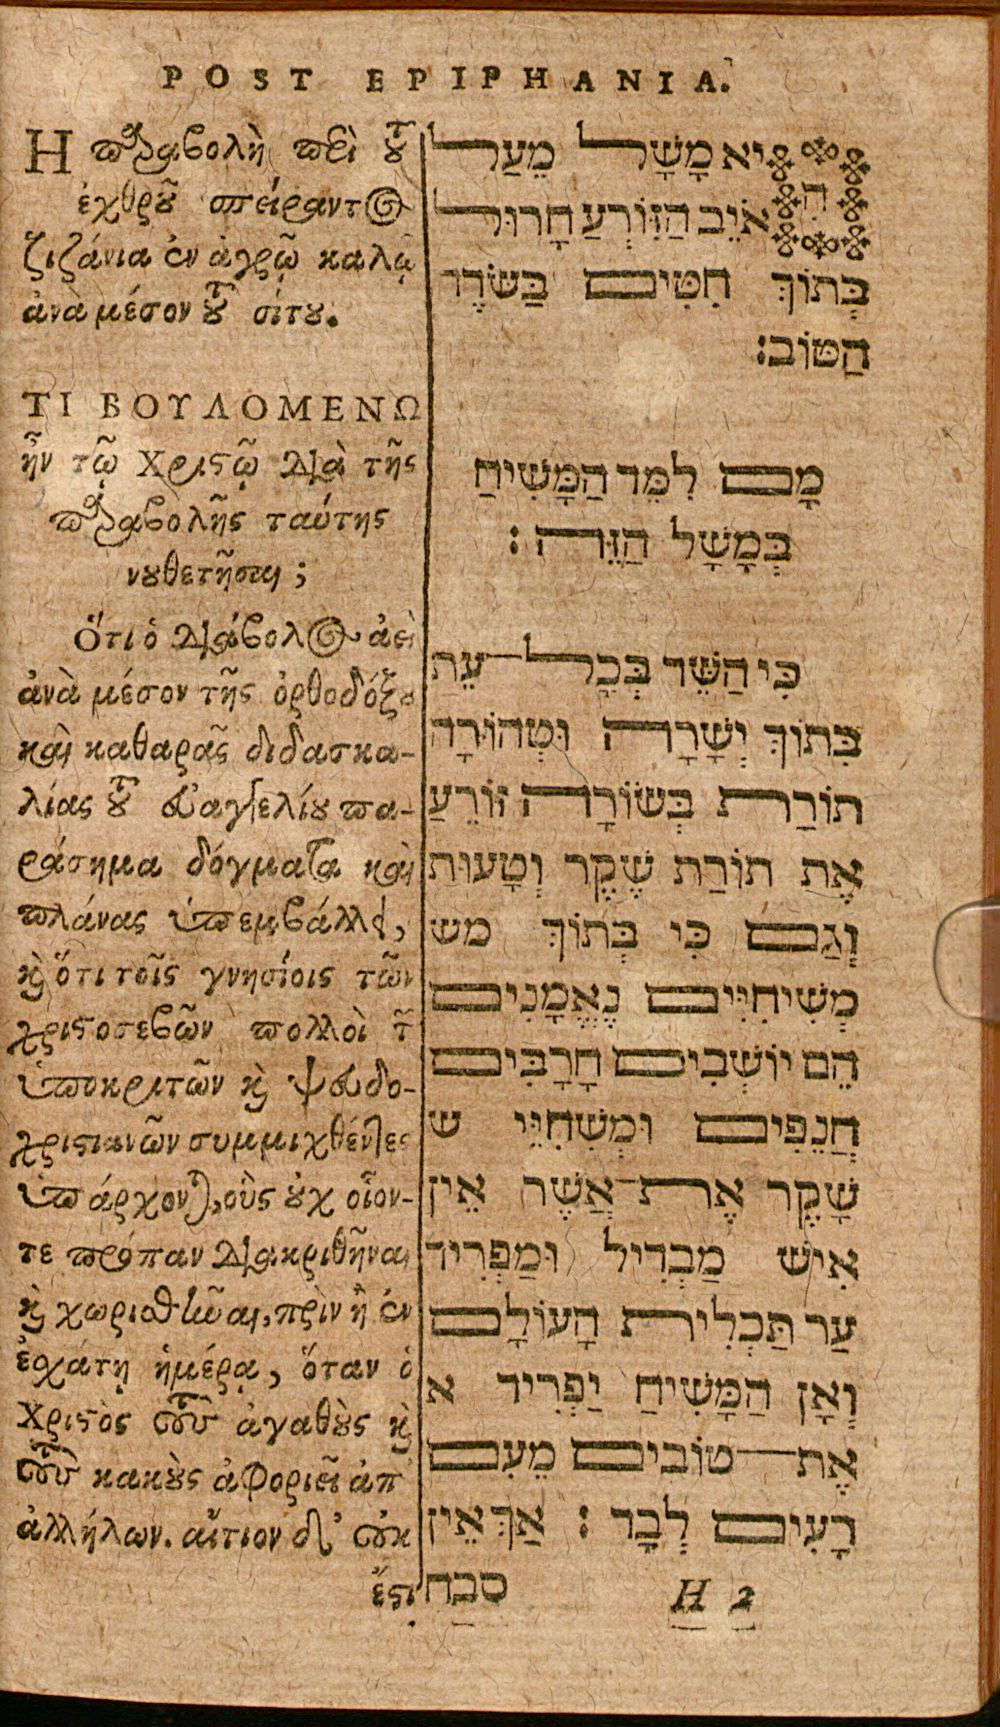 POST EPIPHANIA.
Η παραβολὴ περὶ τοῦ
ἐχθροῦ σπείραντος
ζιζάνια ἐν ἀγρῷ καλῷ
ἀνὰ μέσον τοῦ σίτου.
ΤΙ ΒΟΥΛΟΜΕΝΩ
ἦν τῷ Χριστῷ διὰ τῆς
παραβολῆς ταύτης
νουθετῆσαι;
Ὅτι ὁ διάβολος ἀεὶ
ἀνὰ μέσον τῆς ὀρθοδόξου
καὶ καθαρᾶς διδασκα-
λίας τοῦ εὐαγγελίου πα-
ράσημα δόγματα καὶ
πλάνας ὑπεμβάλλει,
καὶ ὅτι τοῖς γνησίοις τῶν
χριστοσεβῶν πολλοὶ τῶν
ὑποκριτῶν καὶ ψευδο-
χριστιανῶν συμμιχθέντες
ὑπάρχονται, οὓς οὐχ οἷον-
τε πρόπαν διακριθῆναι
καὶ χωρισθῆναι, πρὶν ἢ ἐν
ἐσχάτῃ ἡμέρᾳ, ὅταν ὁ
Χριστὸς τοὺς ἀγαθοὺς καὶ
τοὺς κακοὺς ἀφοριεῖ ἀπ'
ἀλλήλων. αἴτιον δ' οὐκ
ἔστι
יא מָשָׁל מֵעַל
הִ
אֹיֵב הַזּוֹרֵעַ חָרוּל
בְּתוֹךְ חִטִּים בַּשֹּׂדֶר
הַטּוֹב׃
מָם לִמֵּד הַמָּשִׁיחַ
בְּמָשָׁל הַזֵּה׃
כִּי הַשֵּׁד בְּכָל־עֵת
בְּתוֹךְ יְשָׁרָה וּטְהוֹרָה
תוֹרַת בְּשׂוֹרָה זוֹרֵעַ
אֶת תּוֹרַת שֶׁקֶר וְטָעוּת
וְגַם כִּי בְּתוֹךְ מש
מְשִׁיחִיִּים נֶאֱמָנִים
הֵם יוֹשְׁבִים חָרָבִּים
חֲנֵפִים וּמְשִׁחִיֵּי ש
שָׁקֶר אֶת־אֲשֶׁר אֵין
אִישׁ מַבְדִיל וּמַפְרִיד
עַד תַּכְלִית הָעוֹלָם
וְאָן הַמָּשִׁיחַ יַפְרִיד א
אֶת־טוֹבִים מֵעִם
רָעִים לְבָד׃ אַךְ אֵין
סִבַּח
H 2